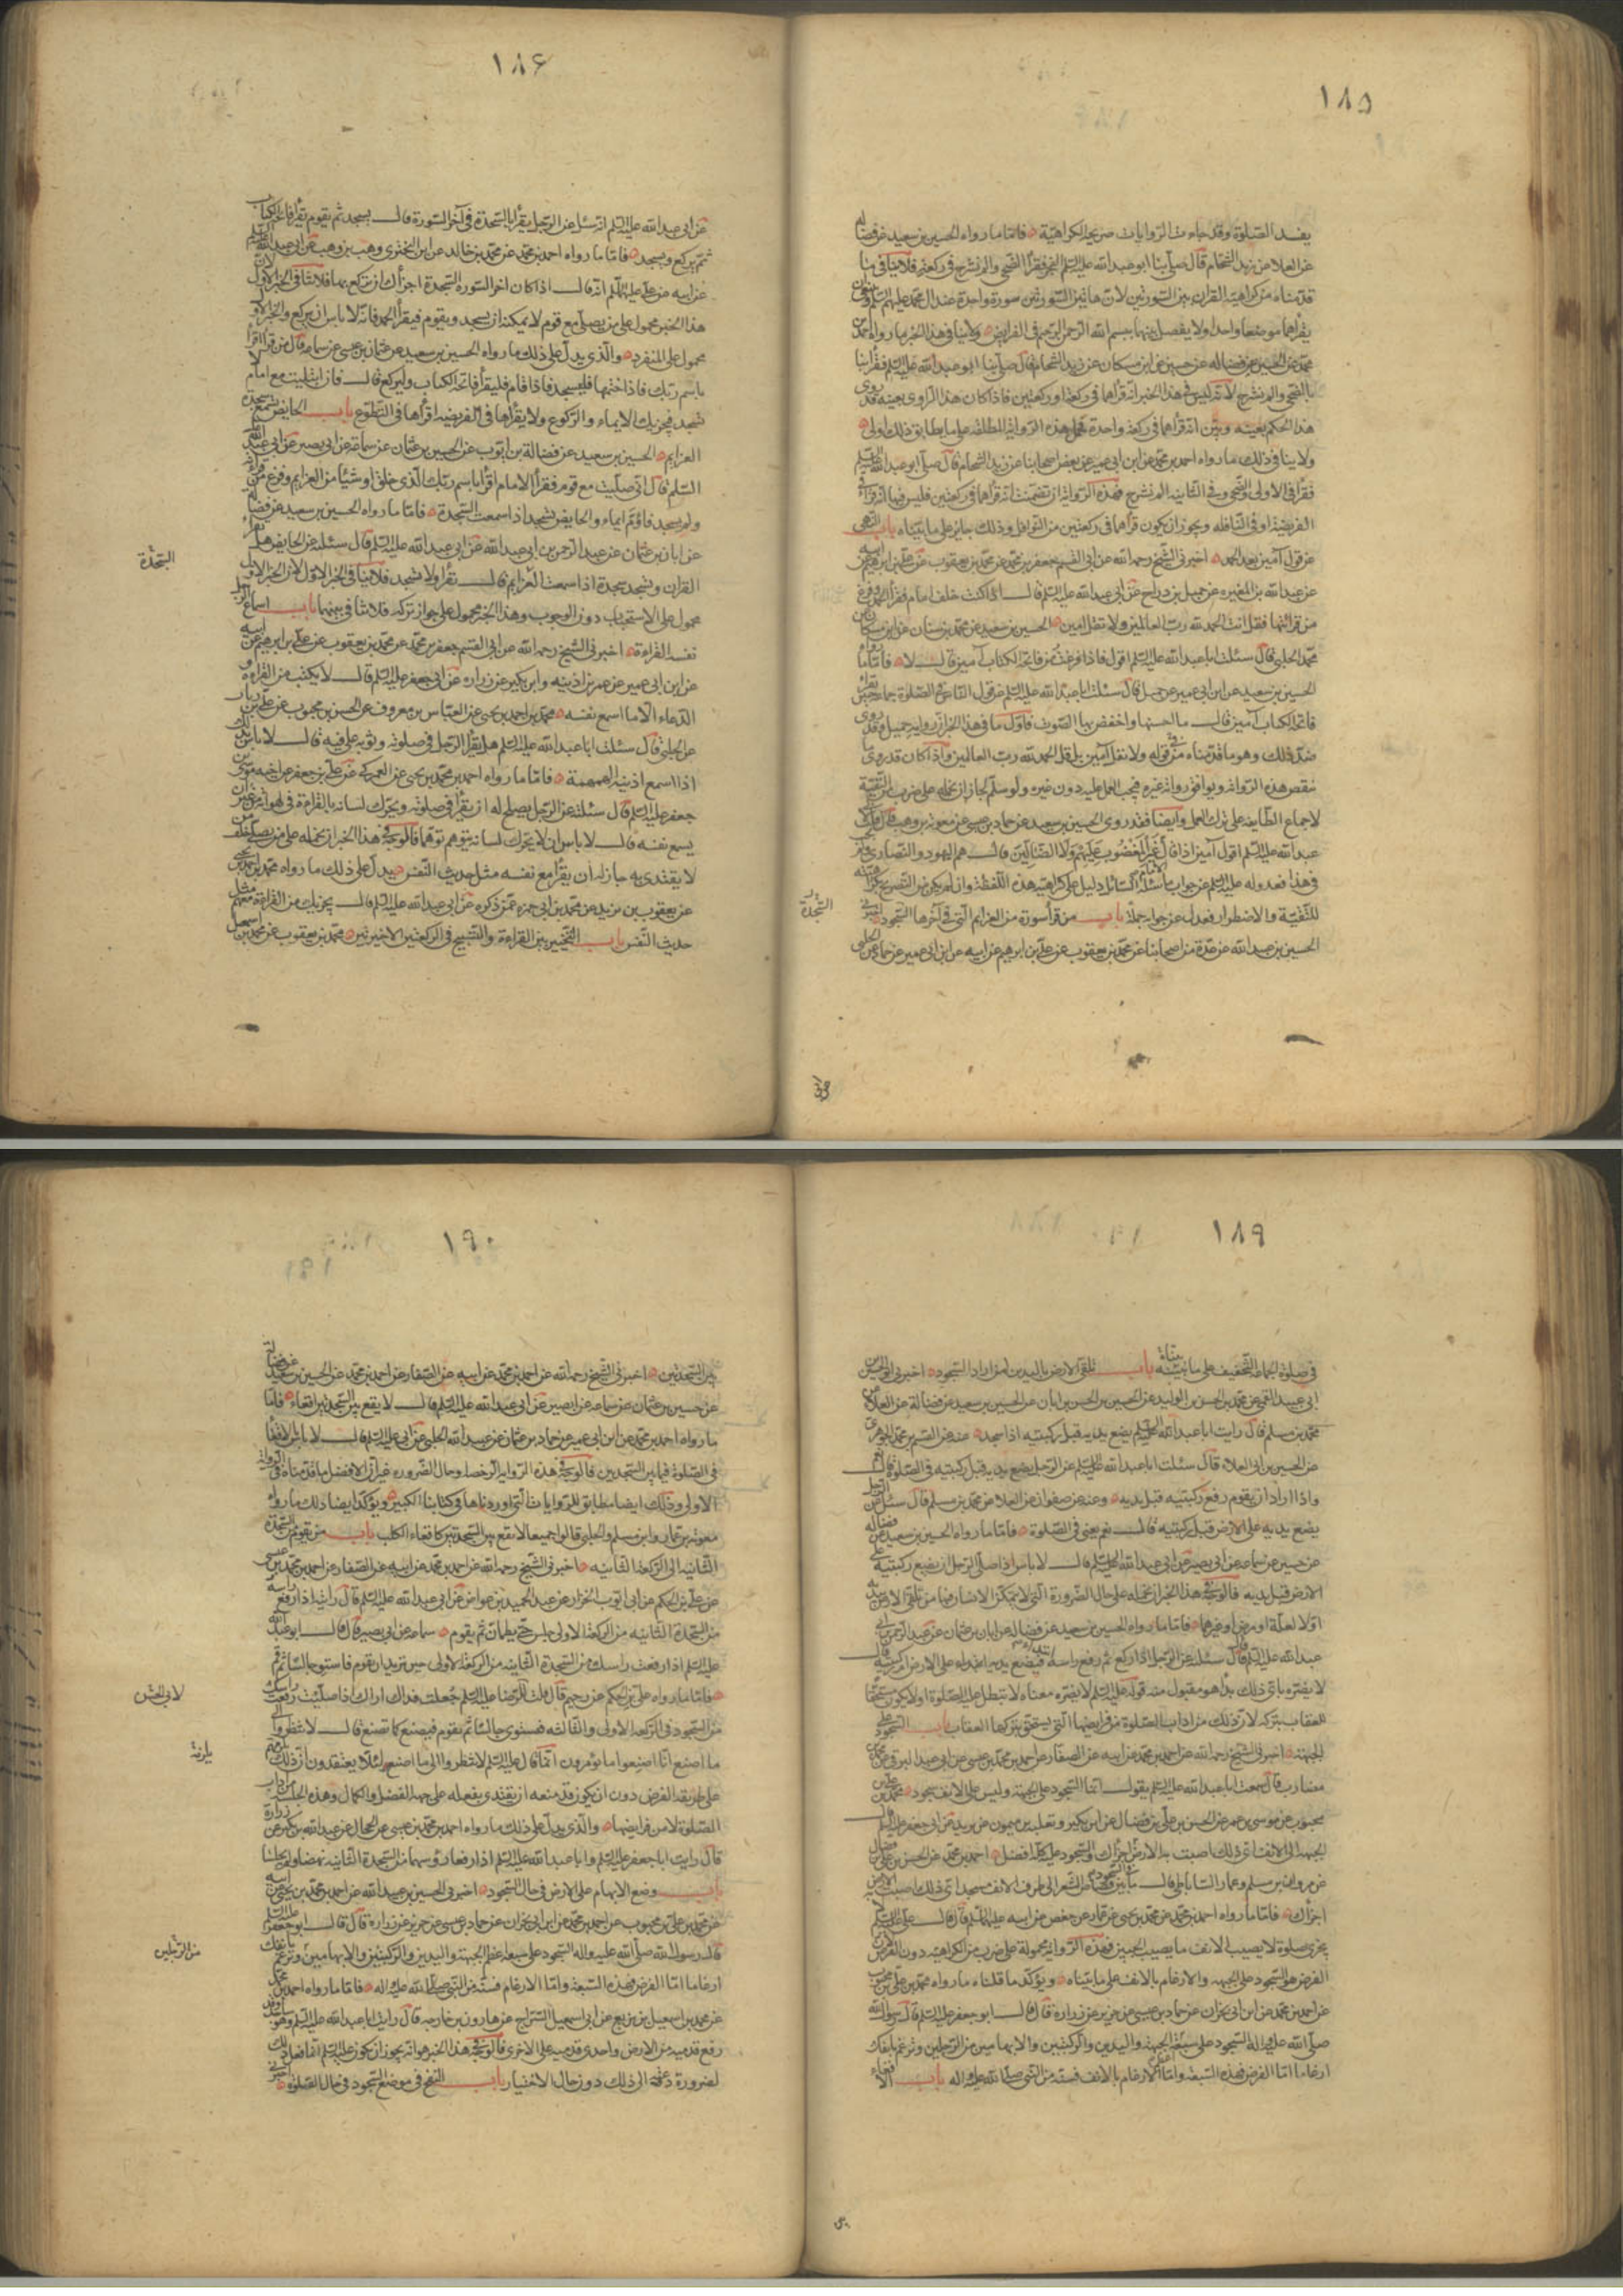 ١٨٥
يفسد الصلوة وقد جاءت الروايات صريحة بالكراهية فاما ما رواه الحسين بن سعيد عن فضالة
عن العلا عن زيد الشحام قال صلى بنا ابو عبد الله عليه السلم الفجر فقرأ الضحى والم نشرح في ركعة فلا ينافي ما
قدمناه من كراهية القران بين السورتين لان هاتين السورتين سورة واحدة عند آل محمد عليهم السلم وينبغي ان
يقرأهما موضعا واحدا ولا يفصل بينهما ببسم الله الرحمن الرحيم في الفرايض ولا ينافي هذا الخبر ما رواه احمد بن
محمد عن الحسين عن فضالة عن حسين عن ابن مسكان عن زيد الشحام قال صلى بنا ابو عبد الله عليه السلم فقرأ بنا
بالضحى والم نشرح لانه ليس في هذا الخبر انه قرأهما في ركعة او ركعتين فاذا كان هذا الراوي بعينه قد روى
هذا الحكم بعينه وبين انه قرأهما في ركعة واحدة فحمل هذه الرواية المطلقة على ما يطابق ذلك اولى
ولا ينافي ذلك ما رواه احمد بن محمد عن ابن ابي عمير عن بعض اصحابنا عن زيد الشحام قال صلى بنا ابو عبد الله عليه السلم
فقرأ في الاولى والضحى وفي الثانية الم نشرح فهذه الرواية تضمنت انه قرأهما في ركعتين فليس فيها انه قرأ في
الفريضة او في النافلة ويجوز ان يكون قرأهما في ركعتين من النوافل وذلك جايز على ما بيناه باب النهي
عن قول آمين بعد الحمد اخبرني الشيخ رحمه الله عن ابي القسم جعفر بن محمد عن محمد بن يعقوب عن علي بن ابرهيم عن ابيه
عن عبد الله بن المغيرة عن جميل بن دراج عن ابي عبد الله عليه السلم قال اذا كنت خلف امام فقرأ الحمد وفرغ
من قرائتها فقل انت الحمد لله رب العالمين ولا تقل امين الحسين بن سعيد عن محمد بن سنان عن ابن مسكان عن
محمد الحلبي قال سئلت ابا عبد الله عليه السلم اقول اذا فرغت من فاتحة الكتاب آمين قال لا فاما ما رواه
الحسين بن سعيد عن ابن ابي عمير عن جميل قال سئلت ابا عبد الله عليه السلم عن قول الناس في الصلوة جماعة حين تقرأ
فاتحة الكتاب آمين قال ما احسنها واخفض بها الصوت فاول ما في هذا الخبر ان راويه جميل وقد روى
ضد ذلك وهو ما قدمناه من قوله ولا تقل آمين بل قل الحمد لله رب العالمين واذا كان قد روى ما
ينقض هذه الرواية ويوافق رواية غيره فيجب العمل عليه دون غيره ولو سلم لجاز ان نحمله على ضرب من التقية
لاجماع الطايفة على ترك العمل وايضا فقد روى الحسين بن سعيد عن حماد بن عيسى عن معوية بن وهب قال قلت لابي
عبد الله عليه السلم اقول آمين اذا قال غير المغضوب عليهم ولا الضالين قال هم اليهود والنصارى
في هذا فعدوله عليه السلم عن جواب ما سئله السائل دليل على كراهية هذه اللفظة وان لم يكن من التصريح بكراهيته
للتقية والاضطرار فعدل عن جوابه جملة باب من قرأ سورة من العزايم التي في آخرها السجود اخبرني
الحسين بن عبيد الله عن عدة من اصحابنا عن محمد بن يعقوب عن علي بن ابرهيم عن ابيه عن ابن ابي عمير عن حماد عن الحلبي
السجدة
١٨۶
عن ابي عبد الله عليه السلم انه سئل عن الرجل يقرأ بالسجدة في آخر السورة قال يسجد ثم يقوم فيقرأ فاتحة الكتاب
ثم يركع ويسجد فاما ما رواه احمد بن محمد عن محمد بن خالد عن ابي البختري وهب بن وهب عن ابي عبد الله عليه السلم
عن ابيه عن علي عليهما السلم انه قال اذا كان اخر السورة السجدة اجزأك ان تركع بها فلا ينافي الخبر الاول لان
هذا الخبر محمول على من يصلي مع قوم لا يمكنه ان يسجد ويقوم فيقرأ الحمد فانه لا باس ان يركع والخبر الاول
محمول على المنفرد والذي يدل على ذلك ما رواه الحسين بن سعيد عن عثمان بن عيسى عن سماعة قال من قرأ اقرأ
باسم ربك فاذا ختمها فليسجد فاذا قام فليقرأ فاتحة الكتاب وليركع قال فان ابتليت مع امام لا
يسجد فيجزيك الايماء والركوع ولا تقرأها في الفريضة اقرأها في التطوع باب الحايض تسمع سجدة
العزايم الحسين بن سعيد عن فضالة بن ايوب عن الحسين بن عثمان عن سماعة عن ابي بصير عن ابي عبد الله عليه
السلم قال ان صليت مع قوم فقرأ الامام اقرأ باسم ربك الذي خلق او شيئا من العزايم وفرغ من قرائته
ولم يسجد فاوم ايماء والحايض تسجد اذا سمعت السجدة فاما ما رواه الحسين بن سعيد عن فضالة
عن ابان بن عثمان عن عبد الرحمن بن ابي عبد الله عن ابي عبد الله عليه السلم قال سئلته عن الحايض هل تقرأ
القران وتسجد سجدة اذا سمعت العزايم قال تقرأ ولا تسجد فلا ينافي الخبر الاول لان الخبر الاول
محمول على الاستحباب دون الوجوب وهذا الخبر محمول على جواز تركه فلا تنافي بينهما باب اسماع الرجل
نفسه القراءة اخبرني الشيخ رحمه الله عن ابي القسم جعفر بن محمد عن محمد بن يعقوب عن علي بن ابرهيم عن ابيه
عن ابن ابي عمير عن عمر بن اذينة وابن بكير عن زرارة عن ابي جعفر عليه السلم قال لا يكتب من القراءة و
الدعاء الا ما اسمع نفسه محمد بن احمد بن يحيى عن العباس بن معروف عن الحسن بن محبوب عن علي بن رئاب
عن الحلبي قال سئلت ابا عبد الله عليه السلم هل يقرأ الرجل في صلوته وثوبه على فيه قال لا باس بذلك
اذا اسمع اذنيه الهمهمة فاما ما رواه احمد بن محمد بن يحيى عن العمركي عن علي بن جعفر عن اخيه موسى بن
جعفر عليه السلم قال سئلته عن الرجل يصلح له ان يقرأ في صلوته ويحرك لسانه بالقراءة في لهواته من غير ان
يسمع نفسه قال لا باس ان لا يحرك لسانه يتوهم توهما فالوجه في هذا الخبر ان نحمله على من يصلي خلف من
لا يقتدى به جاز له ان يقرأ مع نفسه مثل حديث النفس يدل على ذلك ما رواه محمد بن احمد بن يحيى
عن يعقوب بن يزيد عن محمد بن ابي حمزة عمن ذكره عن ابي عبد الله عليه السلم قال يجزيك من القراءة معهم مثل
حديث النفس باب التخيير بين القراءة والتسبيح في الركعتين الاخيرتين محمد بن يعقوب عن محمد بن اسمعيل
السجدة
١٨٩
في صلوة الجماعة التخفيف على ما بيناه باب تلقي الارض باليدين لمن اراد السجود اخبرني ابو الحسين بن
ابي جيد القمي عن محمد بن الحسن بن الوليد عن الحسين بن الحسن بن ابان عن الحسين بن سعيد عن فضالة عن العلا عن
محمد بن مسلم قال رايت ابا عبد الله عليه السلم يضع يديه قبل ركبتيه اذا سجد عنه عن القسم بن محمد الجوهري
عن الحسين بن ابي العلاء قال سئلت ابا عبد الله عليه السلم عن الرجل يضع يديه قبل ركبتيه في الصلوة قال نعم
واذا اراد ان يقوم رفع ركبتيه قبل يديه وعنه عن صفوان عن العلا عن محمد بن مسلم قال سئل عن الرجل
يضع يديه على الارض قبل ركبتيه قال نعم يعني في الصلوة فاما ما رواه الحسين بن سعيد عن فضالة
عن حسين عن سماعة عن ابي بصير عن ابي عبد الله عليه السلم قال لا باس اذا صلى الرجل ان يضع ركبتيه على
الارض قبل يديه فالوجه في هذا الخبر ان نحمله على حال الضرورة التي لا يتمكن الانسان فيها من تلقي الارض بيديه
اولا لعلة او مرض او غيرهما فاما ما رواه الحسين بن سعيد عن فضالة عن ابان بن عثمان عن عبد الرحمن بن ابي
عبد الله عليه السلم قال سئلته عن الرجل اذا ركع ثم رفع راسه ايبدأ فيضع يديه على الارض ام ركبتيه قال
لا يضره باي ذلك بدأ هو مقبول منه قوله عليه السلم لا يضره معناه لا تبطل عليه الصلوة او لا يكون مستحقا
للعقاب بتركه لان ذلك من اداب الصلوة من فرايضها التي يستحق بتركها العقاب باب السجود على
الجبهة اخبرني الشيخ رحمه الله عن احمد بن محمد عن ابيه عن الصفار عن احمد بن محمد بن عيسى عن ابي عبد الله البرقي عن محمد بن
مضارب قال سمعت ابا عبد الله عليه السلم يقول انما السجود على الجبهة وليس على الانف سجود محمد بن علي بن
محبوب عن موسى بن عمر عن الحسن بن علي بن فضال عن ابن بكير وثعلبة بن ميمون عن بريد عن ابي جعفر عليه السلم قال
الجبهة الى الانف اي ذلك اصبت به الارض اجزأك والسجود عليه كله افضل احمد بن محمد عن الحسن بن علي بن فضال
عن مروان بن مسلم وعمار الساباطي قال ما بين قصاص الشعر الى طرف الانف مسجد اي ذلك اصبت به الارض
اجزأك فاما ما رواه احمد بن محمد عن محمد بن يحيى عن عمار عن جعفر عن ابيه عليهما السلم قال قال علي عليه السلم لا
يجزي صلوة لا يصيب الانف ما يصيب الجبين فهذه الرواية محمولة على ضرب من الكراهية دون الفرض لان
الفرض هو السجود على الجبهة والارغام بالانف على ما بيناه ويؤكد ما قلناه ما رواه محمد بن علي بن محبوب
عن احمد بن محمد عن ابن ابي نجران عن حماد بن عيسى عن حريز عن زرارة قال قال ابو جعفر عليه السلم قال رسول الله
صلى الله عليه واله السجود على سبعة اعظم الجبهة واليدين والركبتين والابهامين من الرجلين وترغم بانفك
ارغاما اما الفرض فهذه السبعة واما الارغام بالانف فسنة من النبي صلى الله عليه واله باب الاقعاء
١٩٠
بين السجدتين اخبرني الشيخ رحمه الله عن احمد بن محمد عن ابيه عن الصفار عن احمد بن محمد عن الحسين بن سعيد عن فضالة
عن حسين بن عثمان عن سماعة عن ابي بصير عن ابي عبد الله عليه السلم قال لا تقع بين السجدتين اقعاء فاما
ما رواه احمد بن محمد عن ابن ابي عمير عن حماد بن عثمان عن عبيد الله الحلبي عن ابي عليه السلم قال لا باس بالاقعاء
في الصلوة فيما بين السجدتين فالوجه في هذه الرواية الرخصة وحال الضرورة غير ان الافضل ما قدمناه في الرواية
الاولى وذلك ايضا مطابق للروايات التي اوردناها في كتابنا الكبير ويؤكد ايضا ذلك ما رواه
معوية بن عمار وابن مسلم والحلبي قالوا جميعا لا تقع بين السجدتين كاقعاء الكلب باب من يقوم من السجدة
الثانية الى الركعة الثانية اخبرني الشيخ رحمه الله عن احمد بن محمد عن ابيه عن الصفار عن احمد بن محمد بن عيسى
عن علي بن الحكم عن ابي ايوب الخزاز عن عبد الحميد بن عواض عن ابي عبد الله عليه السلم قال رايته اذا رفع راسه
من السجدة الثانية من الركعة الاولى جلس حتى يطمئن ثم يقوم سماعة عن ابي بصير قال قال ابو عبد الله
عليه السلم اذا رفعت راسك من السجدة الثانية من الركعة الاولى حين تريد ان تقوم فاستو جالسا ثم قم
فاما ما رواه علي بن الحكم عن رحيم قال قلت للرضا عليه السلم جعلت فداك اراك اذا صليت رفعت راسك
من السجود في الركعة الاولى والثالثة فتستوي جالسا ثم تقوم فنصنع كما تصنع قال لا تنظروا الى
ما اصنع انا اصنعوا ما تؤمرون انما قال عليه السلم لا تنظروا الى ما اصنع لئلا يعتقدون ان ذلك يلزمهم
على طريقة الفرض دون ان يكون قد منعه ان يقتدي بفعله على جهة الفضل والكمال وهذه الجلسة من اداب
الصلوة لا من فرايضها والذي يدل على ذلك ما رواه احمد بن محمد بن عيسى عن الحجال عن عبد الله بن بكير عن زرارة
قال رايت ابا جعفر عليه السلم وابا عبد الله عليه السلم اذا رفعا رؤسهما من السجدة الثانية نهضا ولم يجلسا
باب وضع الابهام على الارض في حال السجود اخبرني الحسين بن عبيد الله عن احمد بن محمد بن يحيى عن ابيه
عن محمد بن علي بن محبوب عن احمد بن محمد عن ابن ابي نجران عن حماد بن عيسى عن حريز عن زرارة قال قال ابو جعفر عليه السلم
قال رسول الله صلى الله عليه واله السجود على سبعة اعظم الجبهة واليدين والركبتين والابهامين وترغم بانفك
ارغاما اما الفرض فهذه السبعة واما الارغام فسنة من النبي صلى الله عليه واله فاما ما رواه احمد بن محمد
عن محمد بن اسمعيل بن بزيع عن ابي اسمعيل السراج عن هارون بن خارجة قال رايت ابا عبد الله عليه السلم وهو ساجد وقد
رفع قدميه من الارض واحدى قدميه على الاخرى فالوجه في هذا الخبر هو انه يجوز ان يكون عليه السلم انما فعل ذلك
لضرورة دعته الى ذلك دون حال الاختيار باب النفخ في موضع السجود في حال الصلوة اخبرني
يلزمه
من الرجلين